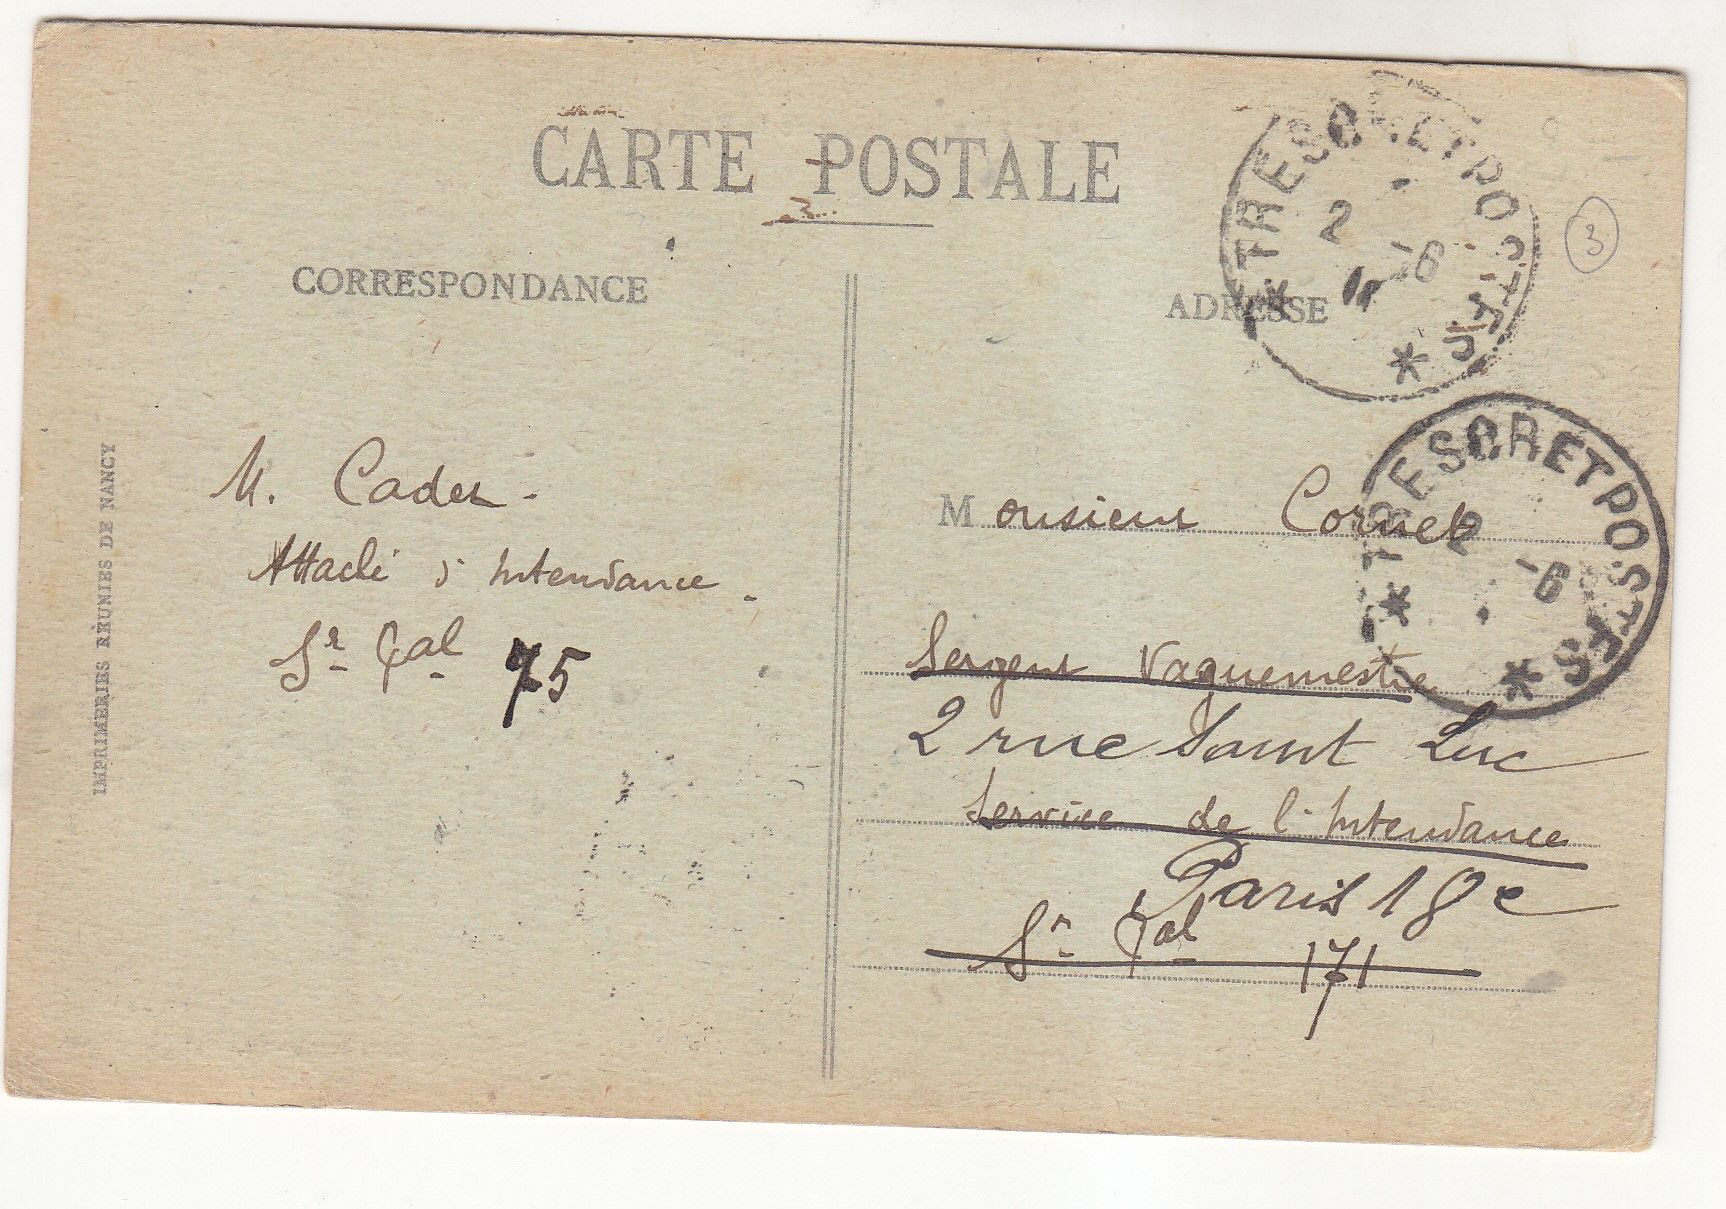 CARTE POSTALE
CORRESPONDANCE
ADRESSE
TRESOR ET POSTES
2 -6
3
TRESOR ET POSTES
2 -6
IMPRIMERIES RÉUNIES DE NANCY
M. Cader.
Attaché d'Intendance.
Sr Gal 75
Monsieur Cornet
Sergent Vaguemestre
2 rue Saint Luc
Service de l'Intendance
Paris 18e
Sr Gal 171